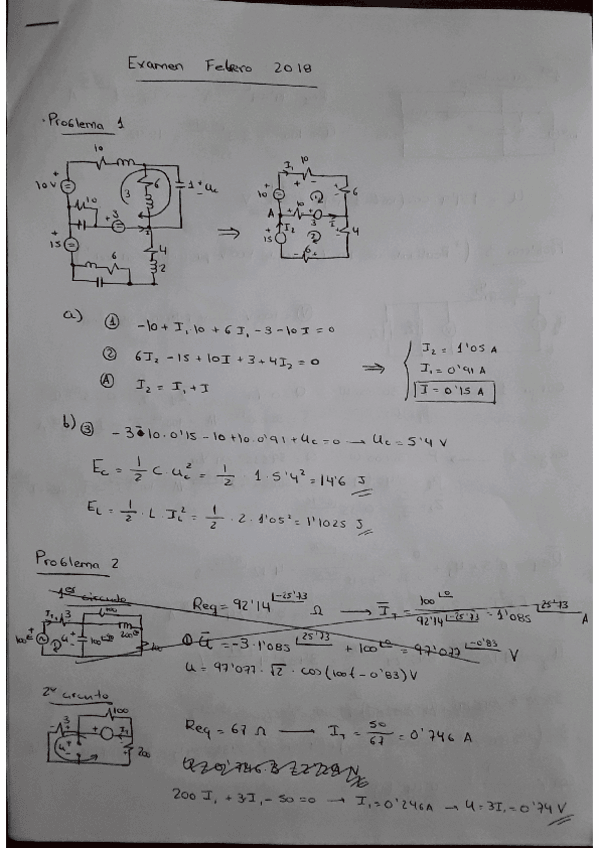 Examen Febrero 2018
Problema 1
10
10V
6
3
1
uc
10
3
15
4
2
6
I1
10
10
6
A
10
3
I
I2
4
15
6
a) ① -10 + I1 10 + 6I1 - 3 - 10I = 0
② 6I2 - 15 + 10I + 3 + 4I2 = 0
Ⓐ I2 = I1 + I
⇒
I2 = 1'05 A
I1 = 0'91 A
I = 0'15 A
b) ③ -3-10·0'15 - 10 + 10·0'91 + uc = 0 → uc = 5'4 V
Ec = 1/2 C uc² = 1/2 1·5'4² = 14'6 J
EL = 1/2 · L IL² = 1/2 · 2 · 1'05² = 1'1025 J
Problema 2
1er circuito
Req = 92'14 |-25'73 Ω → I1 = 100|0 / 92'14|-25'73 = 1'085 |25'73 A
① U = -3·1'085 |25'73 + 100|0 = 97'077 |-0'83 V
u = 97'077·√2 · cos(100t - 0'83) V
2º circuito
100
3
I1
u
200
Req = 67 Ω → I1 = 50/67 = 0'746 A
200 I1 + 3I1 - 50 = 0 → I1 = 0'246A → u = 3I1 = 0'74 V